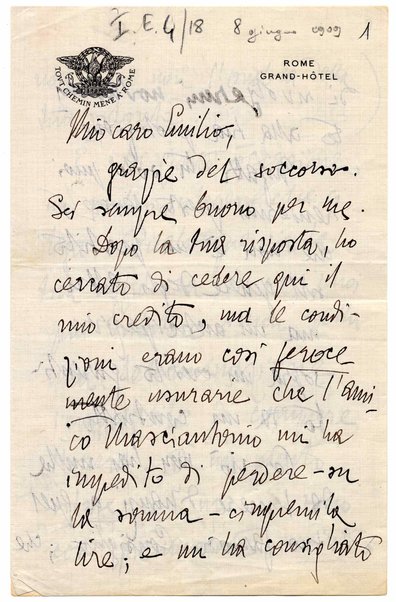 I. E. 4/18 8 giugno 1909 1
TOUT CHEMIN MENE A ROME
ROME
GRAND-HÔTEL
Mio caro Emilio,
grazie del soccorso.
Sei sempre buono per me.
Dopo la tua risposta, ho
cercato di cedere qui il
mio credito, ma le condi-
zioni erano così feroce
mente usurarie che l'ami-
co Masciantonio mi ha
impedito di perdere - su
la somma - cinquemila
lire; e mi ha consigliato